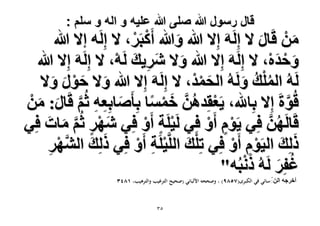 قال رسول الله صلى الله عليه و اله و سلم :
مَنْ قَالَ لا إِلَهَ إِلا الله وَالله أَكْبَرُ، لا إِلَه إلا الله
وَحْدَهُ، لا إِلَهَ إِلا الله وَلا شَرِيكَ لَهُ، لا إِلَهَ إِلا الله
لَهُ المُلْكُ وَلَهُ الحَمْدُ، لا إِلَهَ إِلا الله وَلا حَوْلَ وَلا
قُوَّةَ إِلا بِالله، يَعْقِدهُنَّ خَمْسًا بِأَصَابِعِهِ ثُمَّ قَالَ: مَنْ
قَالَهُنَّ فِي يَوْمٍ أَوْ فِي لَيْلَةٍ أَوْ فِي شَهْرٍ ثُمَّ مَاتَ فِي
ذَلِكَ اليَوْمِ أَوْ فِي تِلْكَ اللَّيْلَةِ أَوْ فِي ذَلِكَ الشَّهْرِ
غُفِرَ لَهُ ذَنْبُه"
أخرجه النسائي في الكبرى(٩٨٥٧) ، وصححه الألباني (صحيح الترغيب والترهيب، ٣٤٨١
٣٨